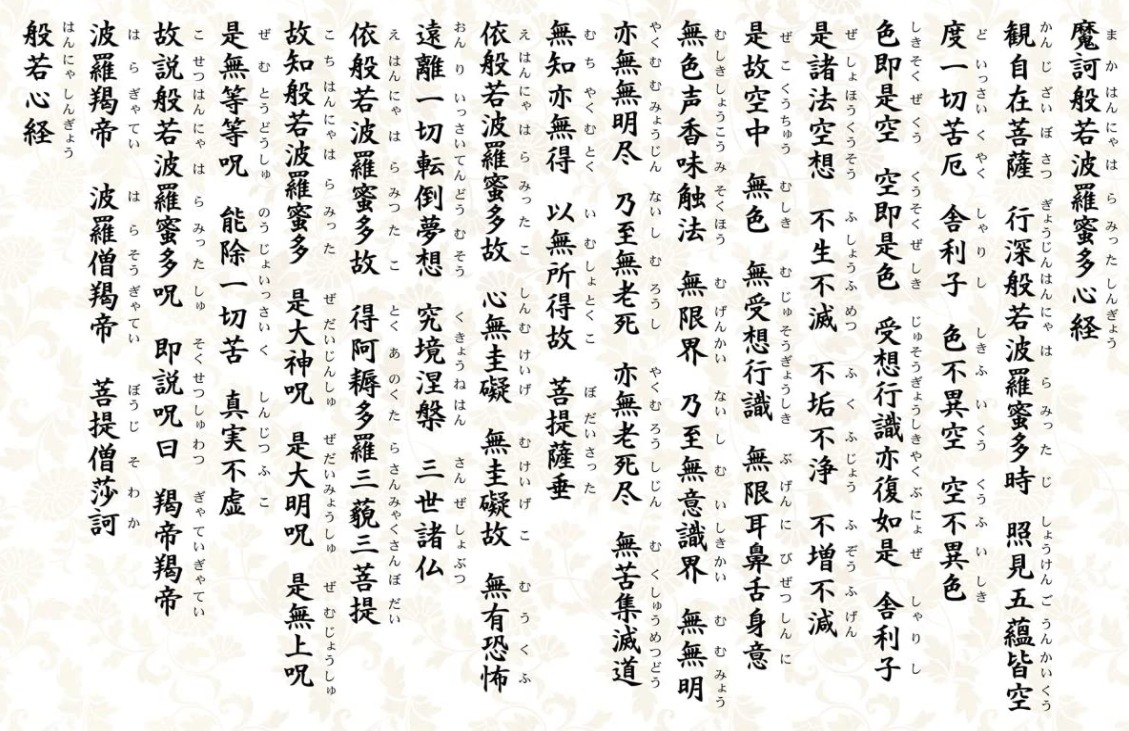 まかはんにゃはらみったしんぎょう
魔訶般若波羅蜜多心経
かんじざいぼさつ ぎょうじんはんにゃはらみったじ しょうけんごうんかいくう
観自在菩薩 行深般若波羅蜜多時 照見五蘊皆空
どいっさいくやく しゃりし しきふいくう くうふいしき
度一切苦厄 舎利子 色不異空 空不異色
しきそくぜくう くうそくぜしき じゅそうぎょうしきやくぶにょぜ しゃりし
色即是空 空即是色 受想行識亦復如是 舎利子
ぜしょほうくうそう ふしょうふめつ ふくふじょう ふぞうふげん
是諸法空想 不生不滅 不垢不浄 不増不減
ぜこくうちゅう むしき むじゅそうぎょうしき ぶげんにびぜつしんに
是故空中 無色 無受想行識 無限耳鼻舌身意
むしきしょうこうみそくほう むげんかい ないしむいしきかい むむみょう
無色声香味触法 無限界 乃至無意識界 無無明
やくむむみょうじん ないしむろうし やくむろうしじん むくしゅうめつどう
亦無無明尽 乃至無老死 亦無老死尽 無苦集滅道
むちやくむとく いむしょとくこ ぼだいさった
無知亦無得 以無所得故 菩提薩垂
えはんにゃはらみったこ しんむけいげ むけいげこ むうくふ
依般若波羅蜜多故 心無圭礙 無圭礙故 無有恐怖
おんりいっさいてんどうむそう くきょうねはん さんぜしょぶつ
遠離一切転倒夢想 究境涅槃 三世諸仏
えはんにゃはらみつたこ とくあのくたらさんみゃくさんぼだい
依般若波羅蜜多故 得阿耨多羅三藐三菩提
こちはんにゃはらみった ぜだいじんしゅ ぜだいみょうしゅ ぜむじょうしゅ
故知般若波羅蜜多 是大神呪 是大明呪 是無上呪
ぜむとうどうしゅ のうじょいっさいく しんじつふこ
是無等等呪 能除一切苦 真実不虚
こせつはんにゃはらみったしゅ そくせつしゅわつ ぎゃていぎゃてい
故説般若波羅蜜多呪 即説呪曰 羯帝羯帝
はらぎゃてい はらそうぎゃてい ぼうじそわか
波羅羯帝 波羅僧羯帝 菩提僧莎訶
はんにゃしんぎょう
般若心経